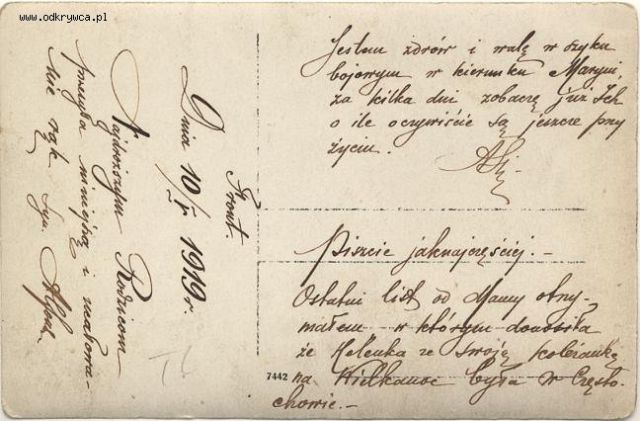 www.odkrywca.pl
Front.
Dnia 10/V 1919 r.
Najdroższym Rodzicom
przesyła niniejszą i ucałowa-
nie rąk syn Alfons.
Jestem zdrów i walę w szyku
bojowym w kierunku Maryni,
za kilka dni zobaczę już Ich
o ile oczywiście są jeszcze przy
życiu.
Piszcie jaknajczęściej.-
Ostatni list od Mamy otrzy-
małem w którym donosiła
że Helenka ze swoją koleżanką
na Wielkanoc była w Często-
chowie.-
7442